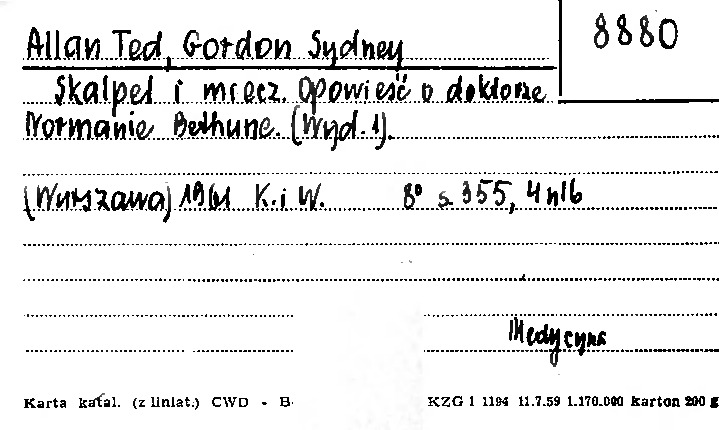 8880
Allan Ted, Gordon Sydney
Skalpel i miecz. Opowieść o doktorze
Normanie Bethune. (Wyd. 1).
(Warszawa) 1961 K. i W. 8° s. 355, 4 nlb
Medycyna
Karta katal. (z liniat.) CWD - B
KZG 1 1194 11.7.59 1.170.000 karton 200 g